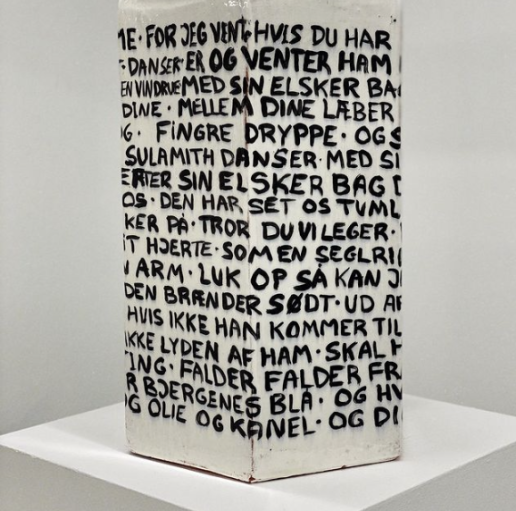 ME · FOR JEG VENT HVIS DU HAR
· DANSER ER OG VENTER HAM
EN VINDRUE MED SIN ELSKER BA
DINE · MELLEM DINE LÆBER
G · FINGRE DRYPPE · OGS
SULAMITH DANSER · MED SI
ERTER SIN ELSKER BAG D
OS · DEN HAR SET OS TUML
KER PÅ · TROR DU VI LEGER ·
IT HJERTE · SOM EN SEGLRI
N ARM · LUK OP SÅ KAN J
DEN BRÆNDER SØDT · UD AF
HVIS IKKE HAN KOMMER TIL
IKKE LYDEN AF HAM · SKAL H
TING · FALDER FALDER FR
R BJERGENES BLÅ · OG HV
OG OLIE OG KANEL · OG DI